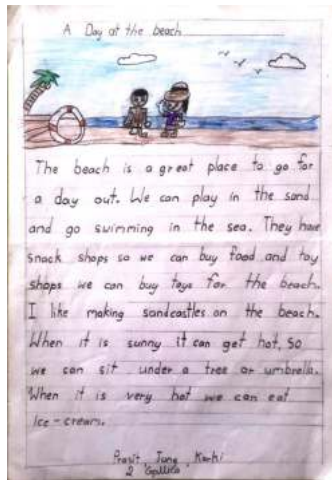 A Day at the beach
The beach is a great place to go for
a day out. We can play in the sand
and go swimming in the sea. They have
snack shops so we can buy food and toy
shops we can buy toys for the beach.
I like making sandcastles on the beach.
When it is sunny it can get hot, So
we can sit under a tree or umbrella.
When it is very hot we can eat
Ice-cream.
Prasit Jung Karki
2